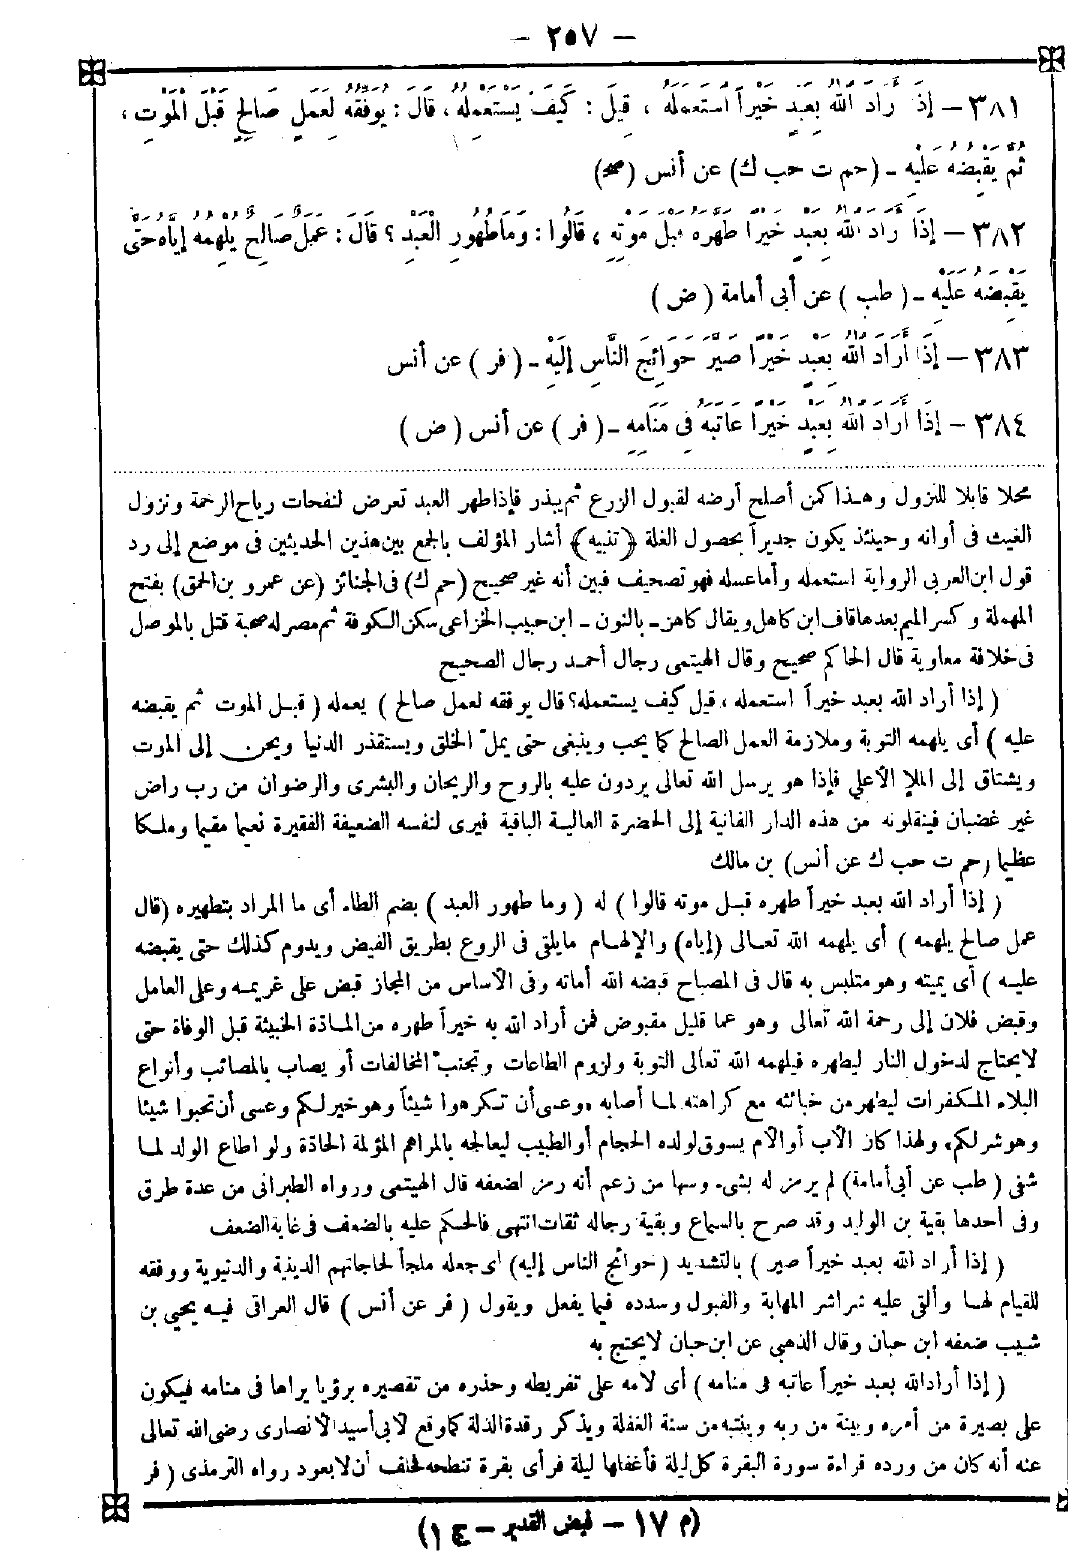 – ٢٥٧ –
٣٨١ – إِذَا أَرَادَ اللهُ بِعَبْدٍ خَيْراً اسْتَعْمَلَهُ ، قِيلَ : كَيْفَ يَسْتَعْمِلُهُ ، قَالَ : يُوَفِّقُهُ لِعَمَلٍ صَالِحٍ قَبْلَ الْمَوْتِ ،
ثُمَّ يَقْبِضُهُ عَلَيْهِ – (حم ت حب ك) عن أنس (صح)
٣٨٢ – إِذَا أَرَادَ اللهُ بِعَبْدٍ خَيْراً طَهَّرَهُ قَبْلَ مَوْتِهِ ، قَالُوا : وَمَا طُهُورِ الْعَبْدِ ؟ قَالَ : عَمَلٌ صَالِحٌ يُلْهِمُهُ إِيَّاهُ حَتَّى
يَقْبِضَهُ عَلَيْهِ – ( طب ) عن أبى أمامة ( ض )
٣٨٣ – إِذَا أَرَادَ اللهُ بِعَبْدٍ خَيْرًا صَيَّرَ حَوَائِجَ النَّاسِ إِلَيْهِ – ( فر ) عن أنس
٣٨٤ – إِذَا أَرَادَ اللهُ بِعَبْدٍ خَيْرًا عَاتَبَهُ فِى مَنَامِهِ – ( فر ) عن أنس ( ض )
محلا قابلا للنزول وهذا كمن أصلح أرضه لقبول الزرع ثم يبذر فإذا طهر العبد تعرض لنفحات رياح الرحمة ونزول
الغيث فى أوانه وحينئذ يكون جديراً بحصول الغلة ﴿تنبيه﴾ أشار المؤلف بالجمع بين هذين الحديثين فى موضع إلى رد
قول ابن العربى الرواية استعمله وأما عسله فهو تصحيف فبين أنه غير صحيح (حم ك) فى الجنائز (عن عمرو بن الحمق) بفتح
المهملة وكسر الميم بعدها قاف ابن كاهل ويقال كاهن – بالنون – ابن حبيب الخزاعى سكن الكوفة ثم مصر له صحبة قتل بالموصل
فى خلافة معاوية قال الحاكم صحيح وقال الهيتمى رجال أحمد رجال الصحيح
( إذا أراد الله بعبد خيراً استعمله ، قيل كيف يستعمله؟ قال يوفقه لعمل صالح ) يعمله ( قبل الموت ثم يقبضه
عليه ) أى يلهمه التوبة وملازمة العمل الصالح كما يحب وينبغى حتى يملّ الخلق ويستقذر الدنيا ويحن إلى الموت
ويشتاق إلى الملإ الأعلى فإذا هو برسل الله تعالى يردون عليه بالروح والريحان والبشرى والرضوان من رب راض
غير غضبان فينقلونه من هذه الدار الفانية إلى الحضرة العالية الباقية فيرى لنفسه الضعيفة الفقيرة نعيما مقيما وملكا
عظيما (حم ت حب ك عن أنس) بن مالك
( إذا أراد الله بعبد خيراً طهره قبل موته قالوا ) له ( وما طهور العبد ) بضم الطاء أى ما المراد بتطهيره (قال
عمل صالح يلهمه ) أى يلهمه الله تعالى (إياه) والإلهام مايلقى فى الروع بطريق الفيض ويدوم كذلك حتى يقبضه
عليه ) أى يميته وهو متلبس به قال فى المصباح قبضه الله أماته وفى الأساس من المجاز قبض على غريمه وعلى العامل
وقبض فلان إلى رحمة الله تعالى وهو عما قليل مقبوض فمن أراد الله به خيراً طهره من المادّة الخبيثة قبل الوفاة حتى
لايحتاج لدخول النار ليطهره فيلهمه الله تعالى التوبة ولزوم الطاعات وتجنب المخالفات أو يصاب بالمصائب وأنواع
البلاء المكفرات ليطهر من خبائثه مع كراهته لما أصابه «وعسى أن تكرهوا شيئاً وهو خير لكم وعسى أن تحبوا شيئا
وهو شر لكم» ولهذا كان الأب أو الأم يسوق لولده الحجام أو الطبيب ليعالجه بالمراهم المؤلمة الحادّة ولو اطاع الولد لما
شفى ( طب عن أبى أمامة) لم يرمز له بشىء وسها من زعم أنه رمز لضعفه قال الهيتمى ورواه الطبرانى من عدة طرق
وفى أحدها بقية بن الوليد وقد صرح بالسماع وبقية رجاله ثقات انتهى فالحكم عليه بالضعف فى غاية الضعف
( إذا أراد الله بعبد خيراً صير ) بالتشديد (حوائج الناس إليه) أى جعله ملجأ لحاجاتهم الدينية والدنيوية ووفقه
للقيام لها وألقى عليه شراشر المهابة والقبول وسدده فيما يفعل ويقول ( فر عن أنس ) قال العراقى فيه يحيى بن
شبيب ضعفه ابن حبان وقال الذهبى عن ابن حبان لايحتج به
( إذا أراد الله بعبد خيراً عاتبه فى منامه ) أى لامه على تفريطه وحذره من تقصيره برؤيا يراها فى منامه فيكون
على بصيرة من أمره وبينة من ربه وينتبه من سنة الغفلة ويذكر رقدة الذلة كما وقع لأبى أسيد الأنصارى رضى الله تعالى
عنه أنه كان من ورده قراءة سورة البقرة كل ليلة فأغفلها ليلة فرأى بقرة تنطحه فحلف أن لا يعود رواه الترمذى ( فر
(م ١٧ – فيض القدير – ج ١)